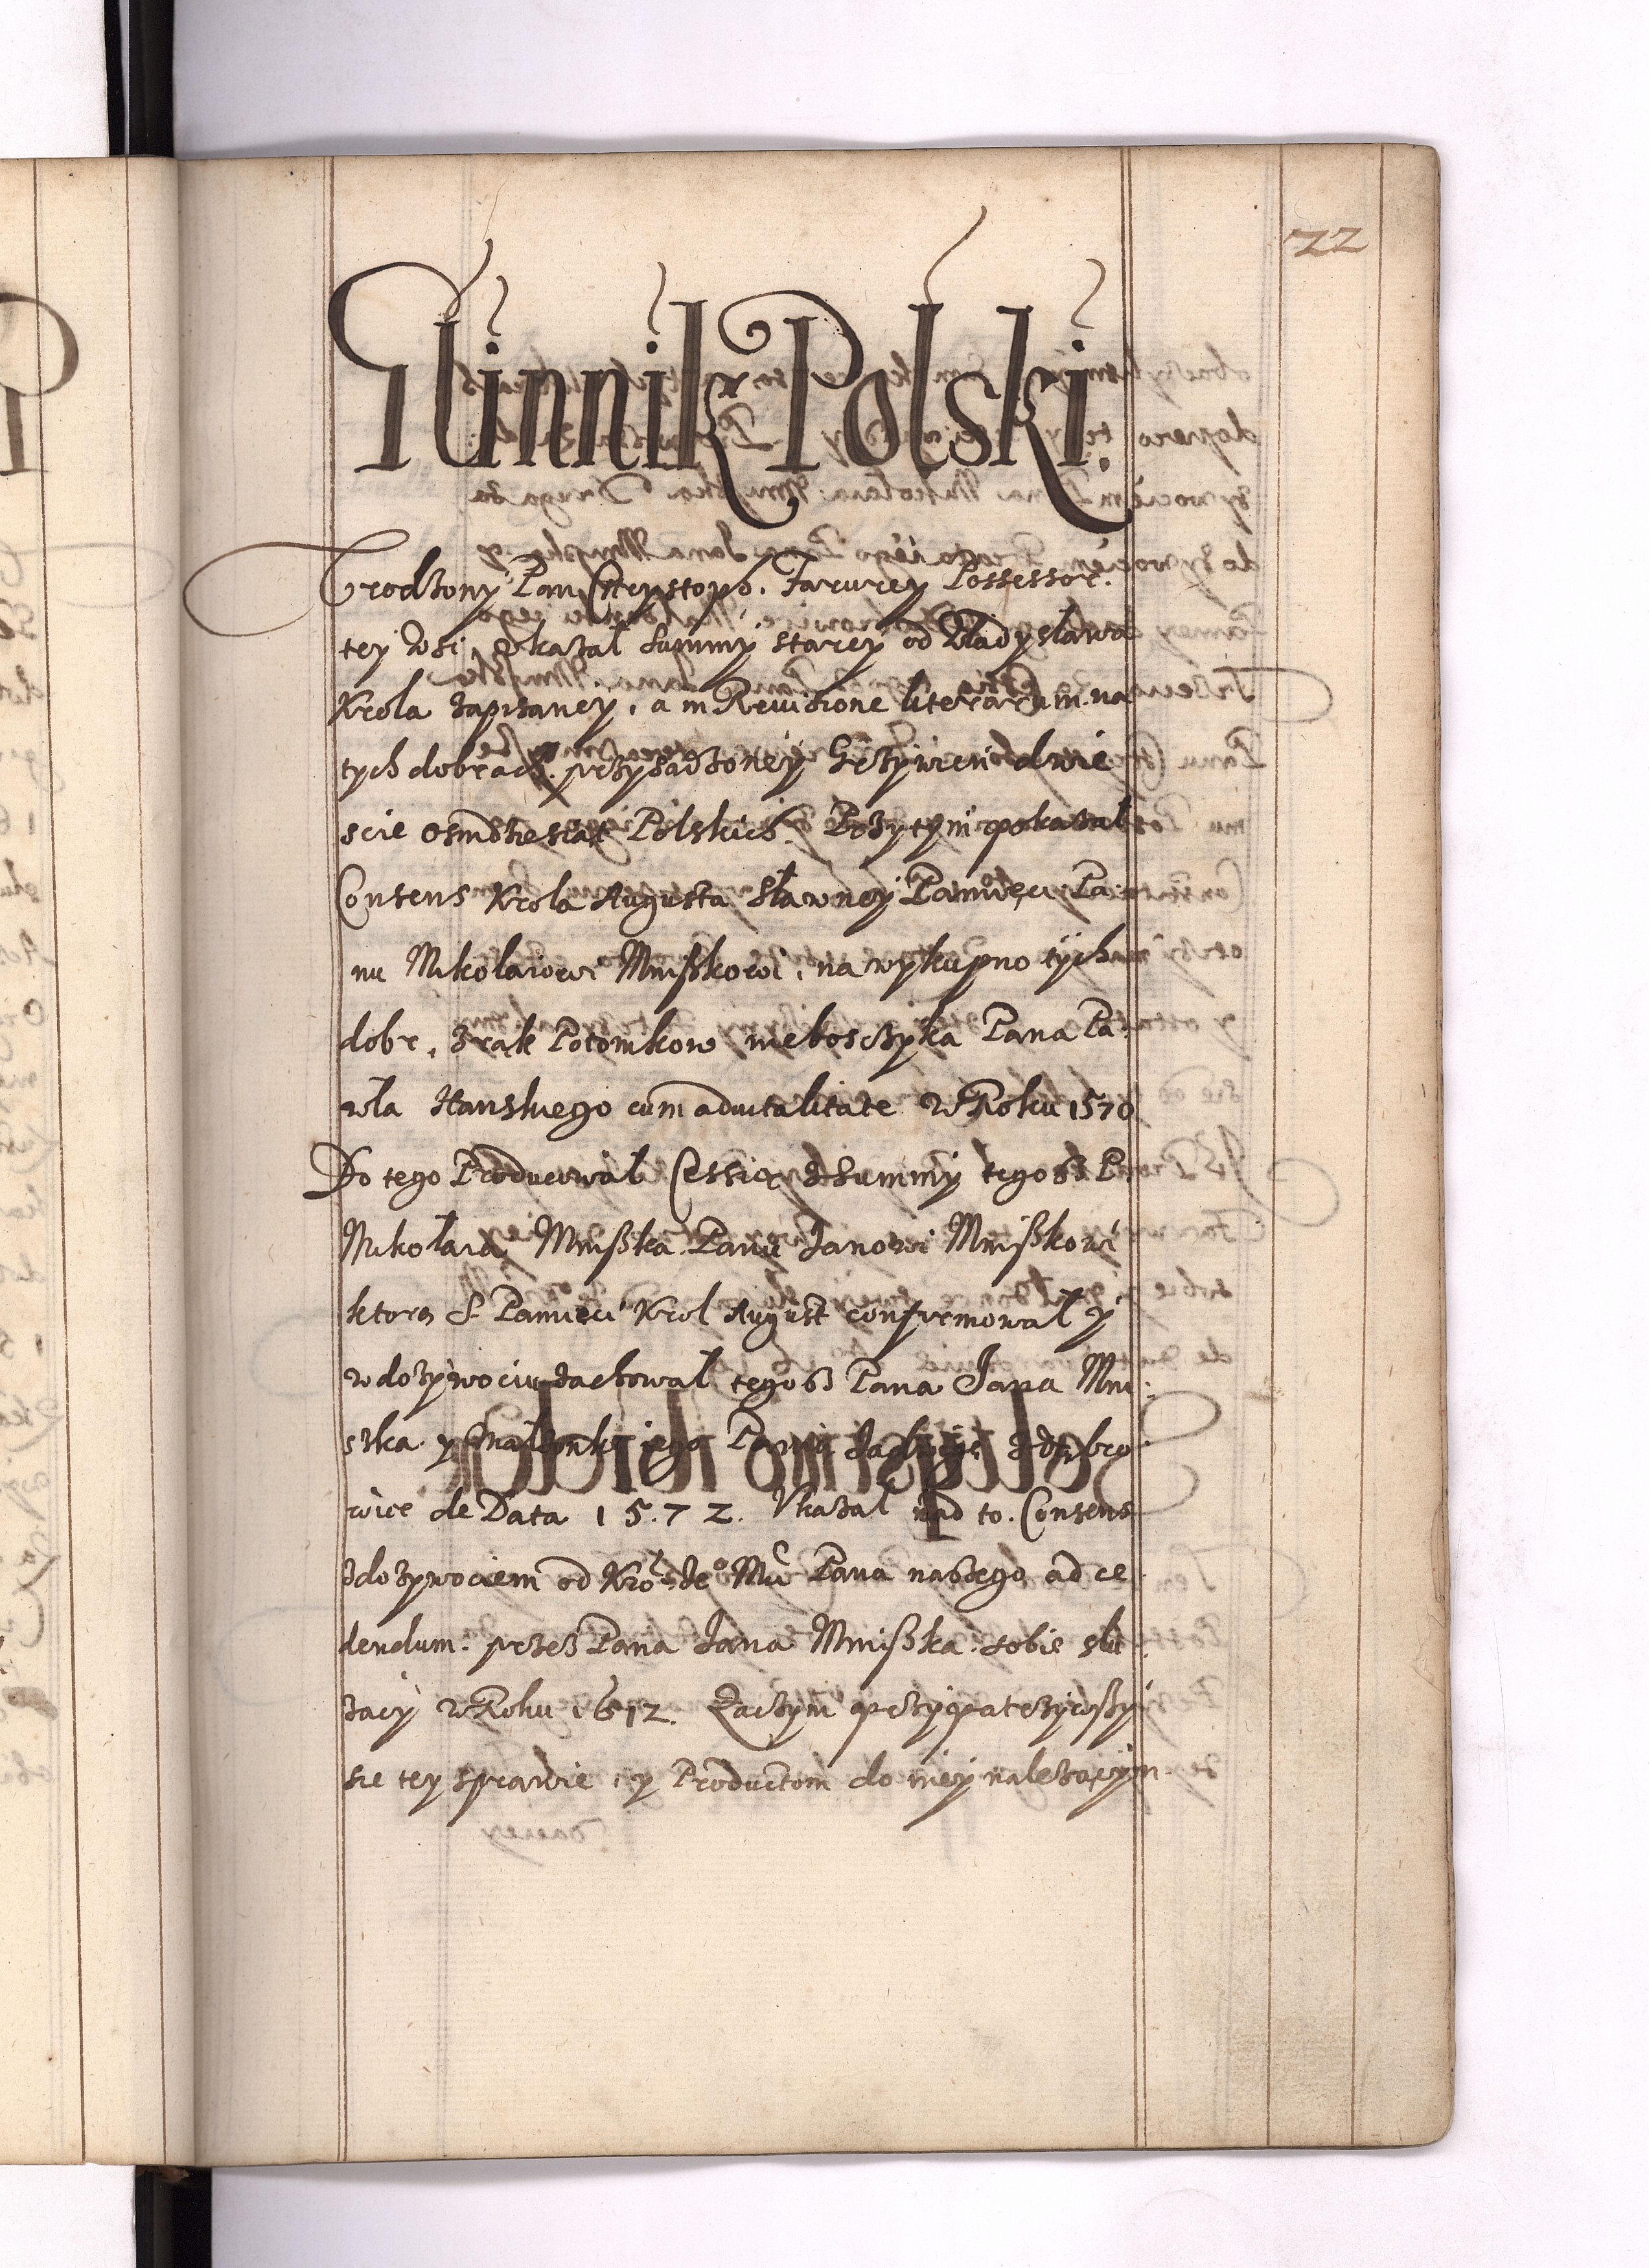 22
Winnik Polski.
Urodzony Pan Chrysztoph. Jarurey Possessor.
tey Wsi, okazal Summy starey od Wladyslawa
Krola zapisaney, a in Reuisione literarum. na
tych dobrach. przysadzoney Grzywien dwie
scie osmdziesiat Polskich. Przytym pokazal
Consens Krola Augusta Slawney Pamięci Pa:
nu Mikolaiowi Mniszkowi, na wykupno tych
dobr, z rak Potomkow nieboszczyka Pana Pa:
wla Hanskiego cum aduitalitate w Roku 1570
Do tego Producowal Cessią z Summy tegosz P.
Mikolaia Mniszka Panu Janowi Mniszkowi
ktorą S. Pamieci Krol August confirmowal y
w dozywociu zachowal tegosz Pana Jana Mni:
szka y Malzonkę iego Panią Jadwigę z Dębro
wice de Data 1572. Ukazal nad to. Consens
z dozywociem od Kro⁠l Je⁠o Mci Pana naszego ad ce
dendum. przez Pana Jana Mniszka. sobie slu
zacy w Roku 1612. Zaczym przypatrzywszy
sie tey sprawie, y Productom do niey nalezacym